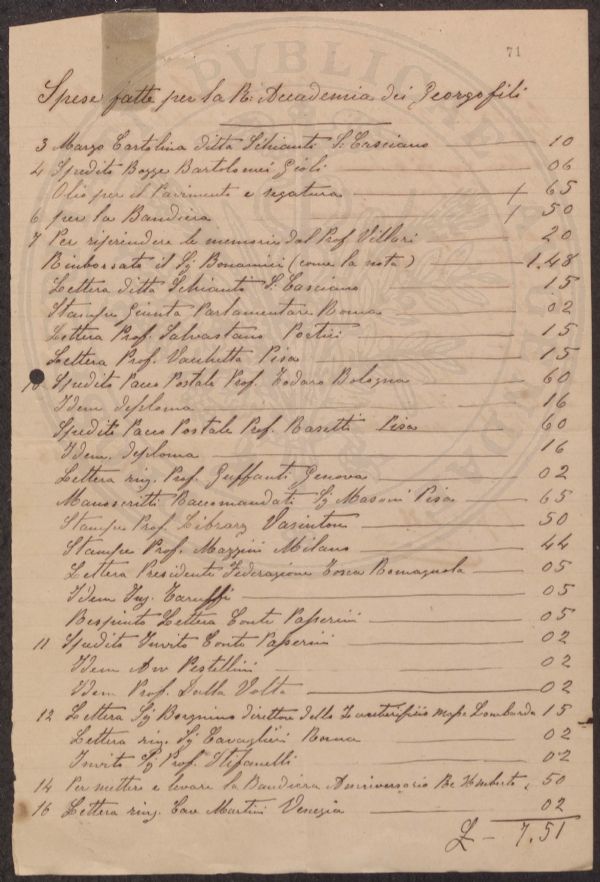 71
Spese fatte per la R. Accademia dei Georgofili
3 Marzo Cartolina ditta Schianti S. Casciano — 10
4 Spedito Bozze Bartolomei Gioli 06
Olio per il Pavimento e segatura — 65
6 per la Bandiera — 50
7 Per riprendere le memorie dal Prof Villari — 20
Rimborsato il Sg Bonamici (come la nota) — 1.48
Lettera ditta Schianti S. Casciano — 15
Stampe Giunta Parlamentare Roma — 02
Lettera Prof. Salvastano Portici — 15
Lettera Prof. Vacchetta Pisa — 15
10 Spedito Pacco Postale Prof. Todaro Bologna — 60
Idem diploma — 16
Spedito Pacco Postale Prof. Rasetti Pisa — 60
Idem. diploma — 16
Lettera ring. Prof. Guffanti Genova — 02
Manoscritti Raccomandati Sg Masoni Pisa — 65
Stampe Prof. Library Vasinton — 50
Stampe Prof. Mazzini Milano — 44
Lettera Presidente Federazione Tosca Romagnola — 05
Idem Ing. Taruffi — 05
Respinto Lettera Conte Passerini — 05
11 Spedito Invito Conte Passerini — 02
Idem Avv Pestellini — 02
Idem Prof. Dalla Volta — 02
12 Lettera Sg Borgnino direttore dello Lombarda 15
Lettera ring. Sg Cavaglieri Roma — 02
Invito Sg Prof. Stefanelli — 02
14 Per mettere e levare la Bandiera Anniversario Re Umberto, 50
16 Lettera ring. Cav Martini Venezia — 02
£ — 7.51